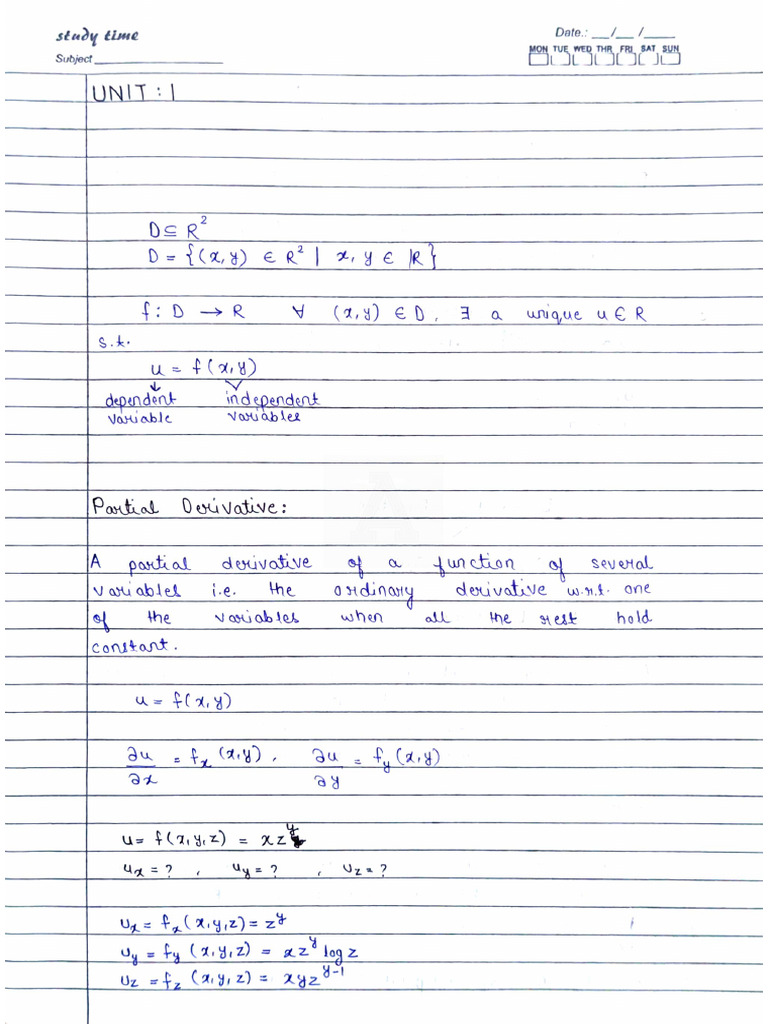 study time
Date.: __/__ /____
MON TUE WED THR FRI SAT SUN
Subject
UNIT : 1
D ⊆ R²
D = {(x, y) ∈ R² | x, y ∈ ℝ}
f : D → R ∀ (x, y) ∈ D, ∃ a unique u ∈ R
s.t.
u = f(x, y)
dependent independent
variable variables
Partial Derivative:
A partial derivative of a function of several
variables i.e. the ordinary derivative w.r.t. one
of the variables when all the rest hold
constant.
u = f(x, y)
∂u/∂x = fₓ(x, y), ∂u/∂y = f_y(x, y)
u = f(x, y, z) = xz^y
uₓ = ?, u_y = ?, u_z = ?
uₓ = fₓ(x, y, z) = z^y
u_y = f_y(x, y, z) = xz^y log z
u_z = f_z(x, y, z) = xyz^(y-1)